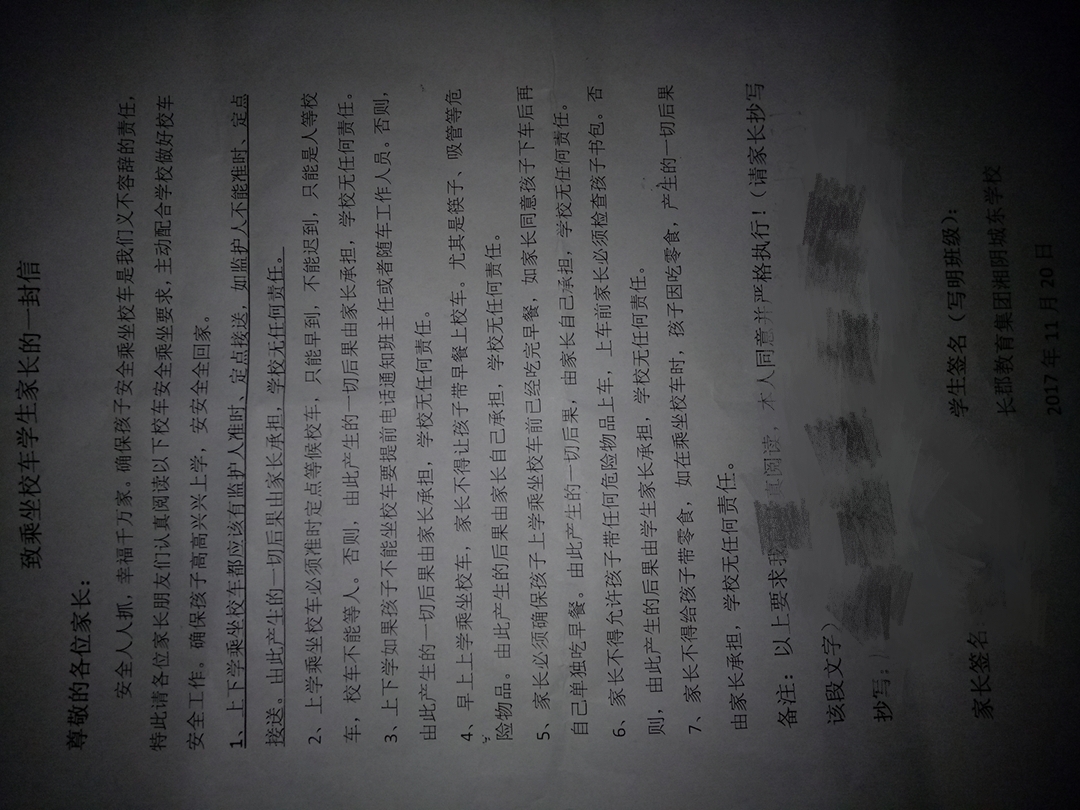 致乘坐校车学生家长的一封信
尊敬的各位家长：
安全人人抓，幸福千万家。确保孩子安全乘坐校车是我们义不容辞的责任，
特此请各位家长朋友们认真阅读以下校车安全乘坐要求，主动配合学校做好校车
安全工作。确保孩子高高兴兴上学，安安全全回家。
1、上下学乘坐校车都应该有监护人准时、定点接送，如监护人不能准时、定点
接送。由此产生的一切后果由家长承担，学校无任何责任。
2、上学乘坐校车必须准时定点等候校车，只能早到，不能迟到，只能是人等校
车，校车不能等人。否则，由此产生的一切后果由家长承担，学校无任何责任。
3、上下学如果孩子不能坐校车要提前电话通知班主任或者随车工作人员。否则，
由此产生的一切后果由家长承担，学校无任何责任。
4、早上上学乘坐校车，家长不得让孩子带早餐上校车。尤其是筷子、吸管等危
险物品。由此产生的后果由家长自己承担，学校无任何责任。
5、家长必须确保孩子上学乘坐校车前已经吃完早餐，如家长同意孩子下车后再
自己单独吃早餐。由此产生的一切后果，由家长自己承担，学校无任何责任。
6、家长不得允许孩子带任何危险物品上车，上车前家长必须检查孩子书包。否
则，由此产生的后果由学生家长承担，学校无任何责任。
7、家长不得给孩子带零食，如在乘坐校车时，孩子因吃零食，产生的一切后果
由家长承担，学校无任何责任。
备注：以上要求我真阅读，本人同意并严格执行！（请家长抄写
该段文字）
抄写：
家长签名 学生签名（写明班级）：
长郡教育集团湘阴城东学校
2017年11月20日